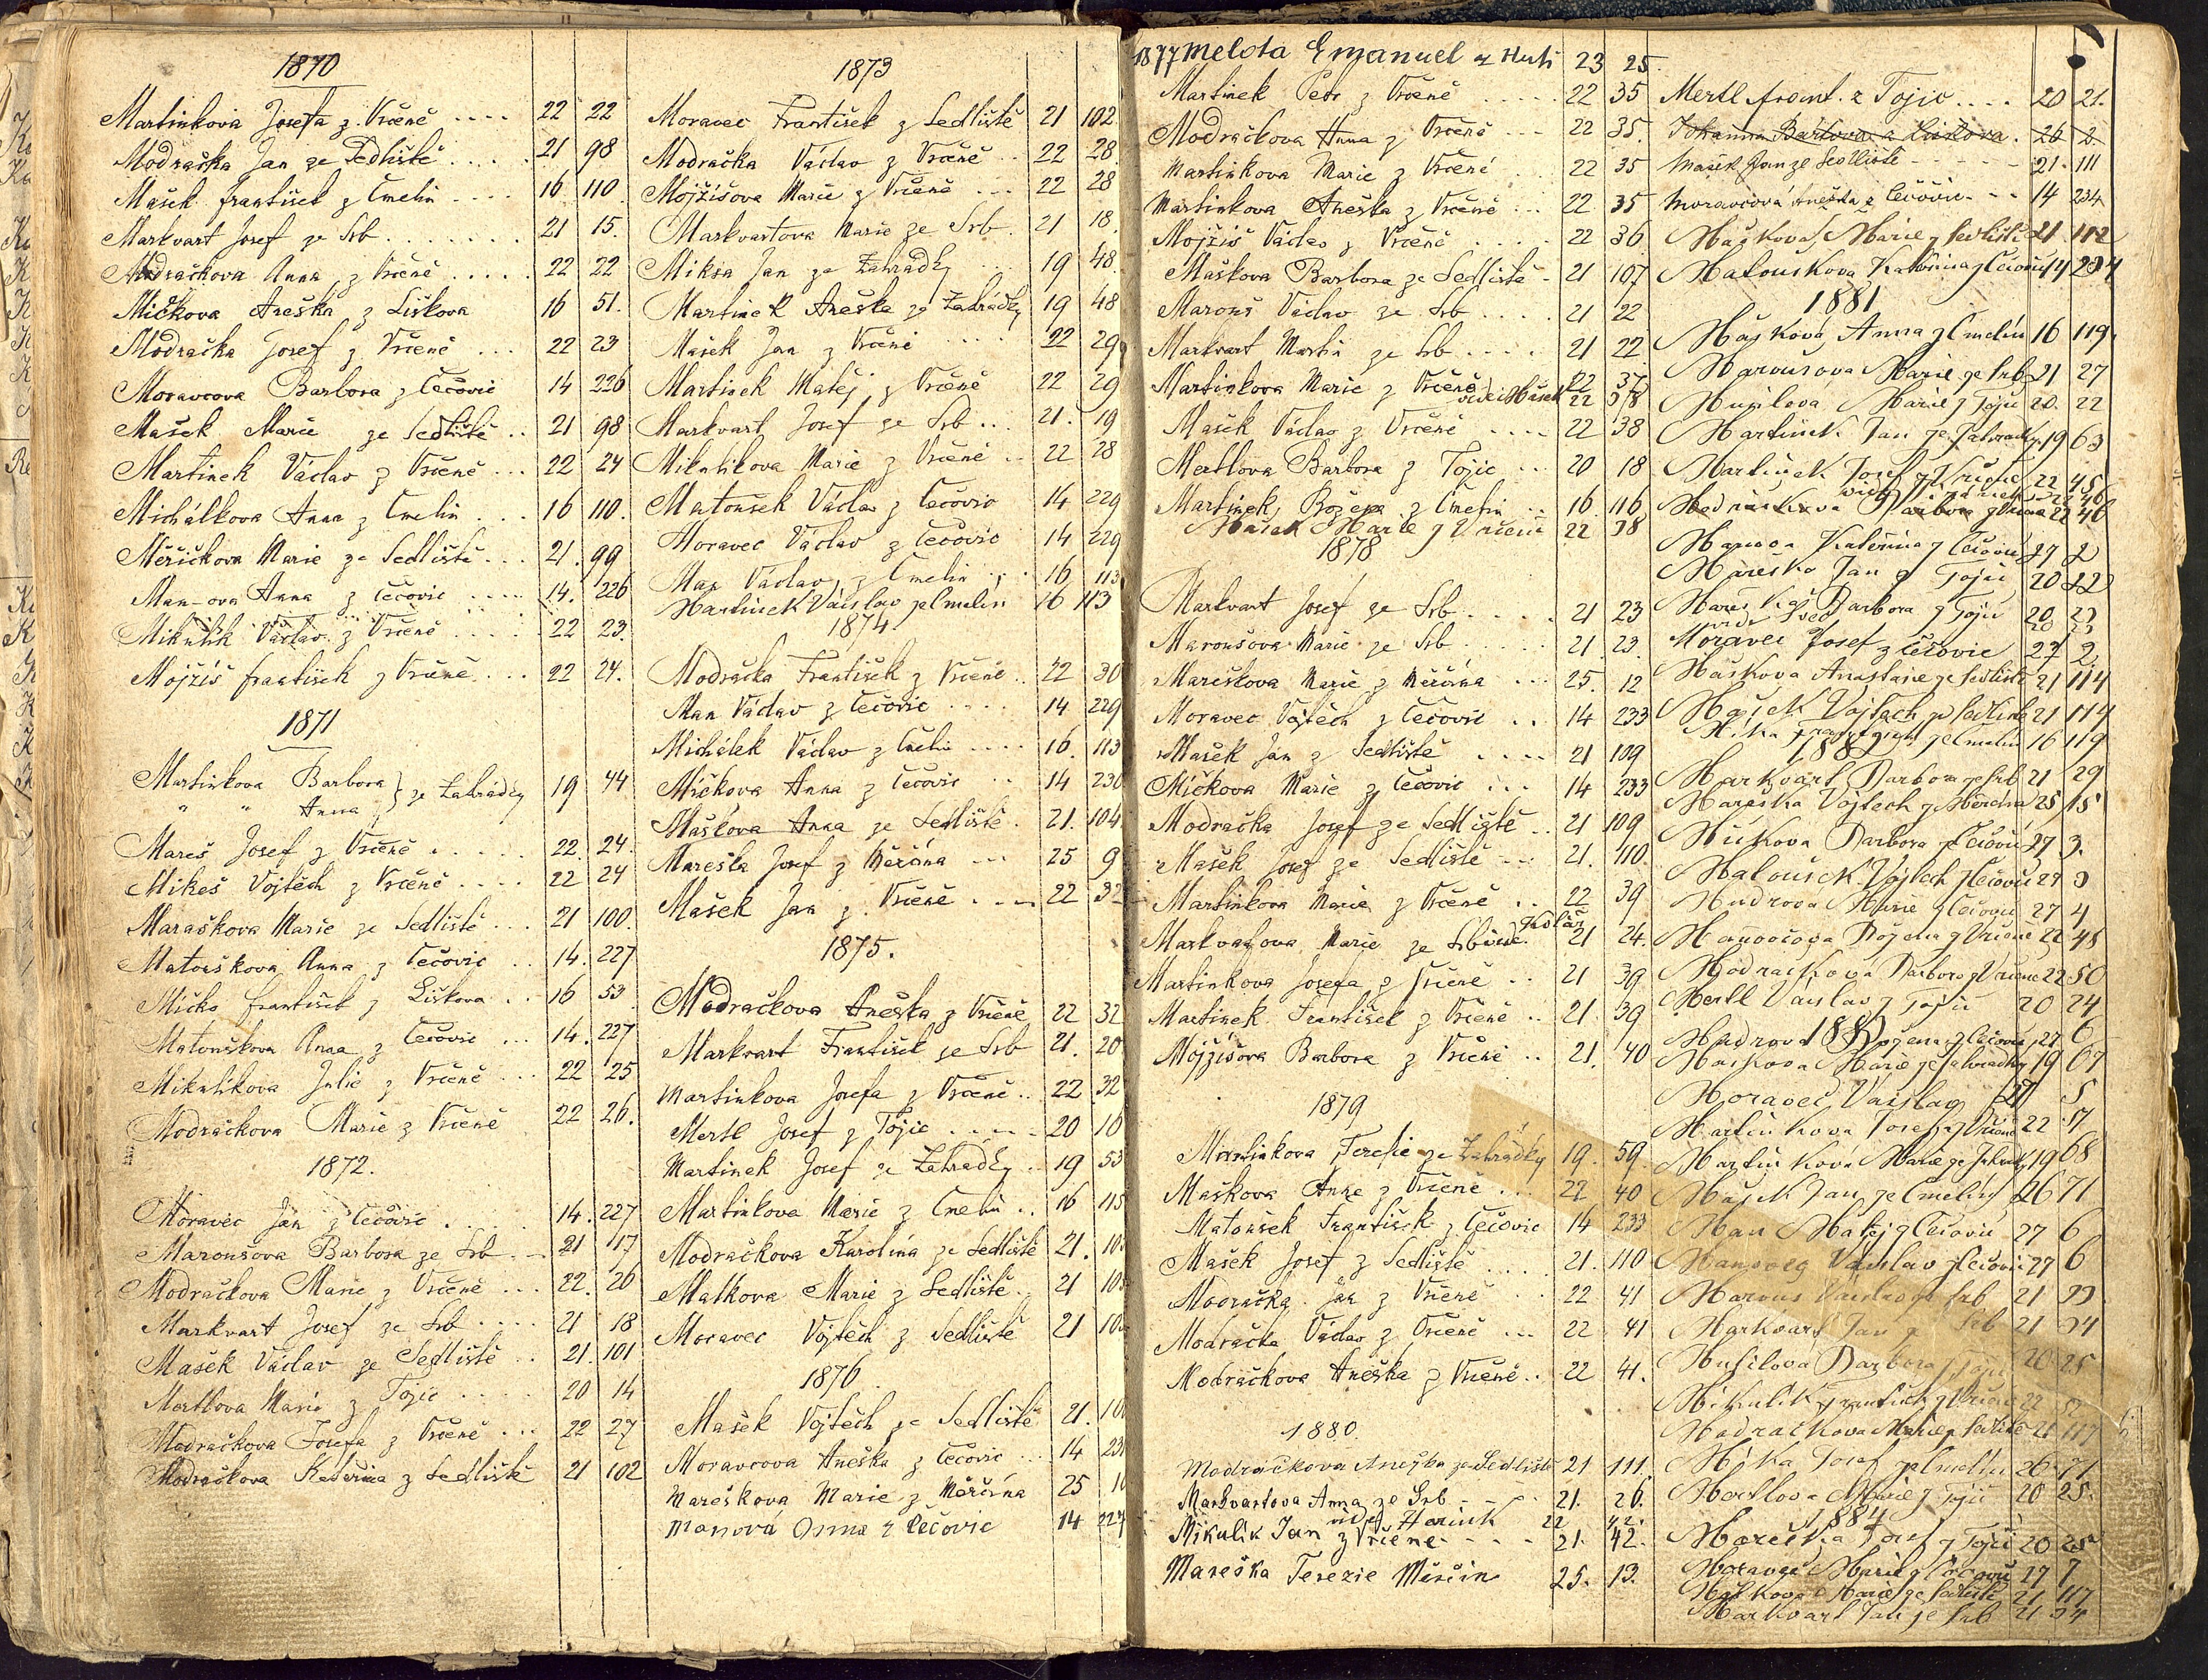 1870
Martinkova Josefa z Vrčeně .... 22 22
Modračka Jan ze Sedliště ..... 21 98
Mašek František z Čmelin .... 16 110
Markvart Josef ze Srb ........ 21 15.
Modračkova Anna z Vrčeně ..... 22 22
Mičkova Aneška z Liškova 16 51.
Modračka Josef z Vrčeně ... 22 23
Moravcova Barbora z Čečovic 14 226
Mašek Marie ze Sedliště .. 21 98
Martinek Václav z Vrčeně ... 22 24
Michálkova Anna z Čmelin ... 16 110.
Měřičkova Marie ze Sedliště ... 21. 99
Man-ova Anna z Čečovic ..... 14. 226
Mikulik Václav z Vrčeně ..... 22 23.
Mojžiš František z Vrčeně ... 22 24.
1871
Martinkova Barbora } ze Zahrádky 19 44
" " Anna
Mareš Josef z Vrčeně ..... 22. 24.
Mikeš Vojtěch z Vrčeně .... 22 24
Maraškova Marie ze Sedliště ... 21 100.
Matouškova Anna z Čečovic .. 14. 227
Mičko František z Liškova .. 16 53
Matouškova Anna z Čečovic ... 14. 227
Mikulikova Julie z Vrčeně ... 22 25
Modračkova Marie z Vrčeně 22 26.
1872.
Moravec Jan z Čečovic ..... 14. 227
Maroušova Barbora ze Srb .- 21 17
Modračkova Marie z Vrčeně ... 22. 26
Markvart Josef ze Srb .... 21 18
Mašek Václav ze Sedliště .. 21. 101
Mertlova Marie z Tojic ..... 20 14
Modračkova Josefa z Vrčeně ... 22 27
Modračkova Kateřina z Sedliště 21 102
1873
Moravec František z Sedliště 21 102.
Modračka Václav z Vrčeně .. 22 28.
Mojžišova Marie z Vrčeně ... 22 28
Markvartova Marie ze Srb . 21 18.
Miksa Jan ze Zahrádky ... 19 48.
Martinek Aneška ze Zahrádky 19 48
Mašek Jan z Vrčeně .... 22 29
Martinek Matěj z Vrčeně 22 29
Markvart Josef ze Srb ... 21. 19
Mikulikova Marie z Vrčeně .. 22 28
Matoušek Václav z Čečovic 14 229
Moravec Václav z Čečovic 14 229
Man Václav z Čmelin ... 16 113
Martinek Václav z Čmelin 16 113
1874.
Modračka František z Vrčeně .. 22 30
Man Václav z Čečovic .... 14 229
Michálek Václav z Čmelin .... 16. 113
Mičkova Anna z Čečovic ... 14 230
Maškova Anna ze Sedliště . 21. 104.
Mareška Josef z Měrčína --- 25 9
Mašek Jan z Vrčeně .... 22 32
1875.
Modračkova Aneška z Vrčeně 22 32
Markvart František ze Srb 21. 20
Martinkova Josefa z Vrčeně .. 22 32
Mertl Josef z Tojic ..... 20 16
Martinek Josef ze Zahrádky . 19 53
Martinkova Marie z Čmelin .. 16 115
Modračkova Karolína ze Sedliště 21.
Matkova Marie z Sedliště . 21
Moravec Vojtěch z Sedliště 21
1876
Mašek Vojtěch ze Sedliště 21.
Moravcova Aneška z Čečovic ... 14
Mareškova Marie z Měrčína 25
Manová Anna z Čečovic 14
1877 Melota Emanuel z Huti 23 25.
Martinek Petr z Vrčeně ..... 22 35
Modračkova Anna z Vrčeně --- 22 35.
Martinkova Marie z Vrčeně . .. 22 35
Martinkova Aneška z Vrčeně ... 22 35
Mojžiš Václav z Vrčeně .... 22 36
Maškova Barbora ze Sedliště - 21 107
Marouš Václav ze Srb .... 21 22
Markvart Martin ze Srb .... 21 22
Martinkova Marie z Vrčeně 22 37
vide Mašek 22 378
Mašek Václav z Vrčeně .... 22 38
Mertlova Barbora z Tojic ... 20 18
Martinek Božena z Čmelin .. 16. 116
Mašek Marie z Vrčeně 22 38
1878
Markvart Josef ze Srb ..... 21 23
Maroušova Marie ze Srb ..... 21. 23.
Mareškova Marie z Měrčína ... 25. 12
Moravec Vojtěch z Čečovic .. 14 233
Mašek Jan z Sedliště .... 21 109
Mičkova Marie z Čečovic ... 14 233
Modračka Josef ze Sedliště .. 21 109
Mašek Josef ze Sedliště --- 21. 110.
Martinkova Marie z Vrčeně .. 22 39
Markvartova Marie ze Srb vide 21 24.
Martinkova Josefa z Vrčeně .. 21 39
Martinek František z Vrčeně .. 21. 39
Mojžišova Barbora z Vrčeně .. 21. 40
1879
Martinkova Terefie ze Zahrádky 19. 59.
Maškova Anna z Vrčeně ... 22 40
Matoušek František z Čečovic 14 233
Mašek Josef z Sedliště .... 21. 110
Modračka Jan z Vrčeně .. 22 41
Modračka Václav z Vrčeně ... 22 41
Modračkova Aneška z Vrčeně .. 22 41.
1880.
Modračkova Anežka ze Sedliště 21 111.
Markvartova Anna ze Srb - - . 21. 26.
22 42.
Mikulik Jan z Vrčeně - - - 21. 42.
Mareška Terezie Měrčin 25. 13.
Mertl František z Tojic .... 20 21.
Johanna Bartova z Liškova . 26 2.
Mašek Jan ze Sedliště - - - - 21. 111
Moravcová Aneška z Čečovic - - 14 234
Maškova Marie z Sedliště 21 112
Matouškova Kateřina z Čečovic 14 234
1881
Mašková Anna z Čmelin 16 119.
Maroušova Marie ze Srb 21 27
Musilova Marie z Tojic 20. 22
Martinek Jan ze Zahrádky 19 63
Martinek Josef z Vrčeně 22 45
Modračkova Barbora z Vrčeně 22 46
Manova Kateřina z Čečovic 27 2
Mareška Jan z Tojic 20 22
Mareška Barbora z Tojic 20 23
Moravec Josef z Čečovic 27 2.
Maškova Anastasie ze Sedliště 21 114
Mašek Vojtěch ze Sedliště 21 114
Mika František z Čmelin 16 119
1882
Markvart Barbora ze Srb 21 29
Mareška Vojtěch z Měrčina 25 15
Mičkova Barbora z Čečovic 27 3.
Matoušek Vojtěch z Čečovic 27 3
Mudrova Marie z Čečovic 27 4
Božena z Vrčeně 22 48
Modračkova Barbora z Vrčeně 22 50
Mertl Václav z Tojic 20 24
1883
Mudrova Božena z Čečovic 27 6
Maškova Marie ze Zahrádky 19 67
Moravec Václav 27 5
Martinkova Josefa z Vrčeně 22
Martinkova Marie ze Zahrádky 19 68
Mašek Jan z Čmelin 26 71
Man Matěj z Čečovic 27 6
Václav z Čečovic 27 6
Marouš Václav ze Srb 21 33
Markvart Jan ze Srb 21 34
Musilova Barbora z Tojic 20 25
Mikulik František z Vrčeně 22
Modračkova Marie z Sedliště 21 117
Mika Josef z Čmelin 26 71
Mertlova Marie z Tojic 20 25.
1884
Mareška Josef z Tojic 20 25
Moravec Marie z Čečovic 27 7
Maškova Marie ze Sedliště 21 117
Markvart Jan ze Srb 21 34